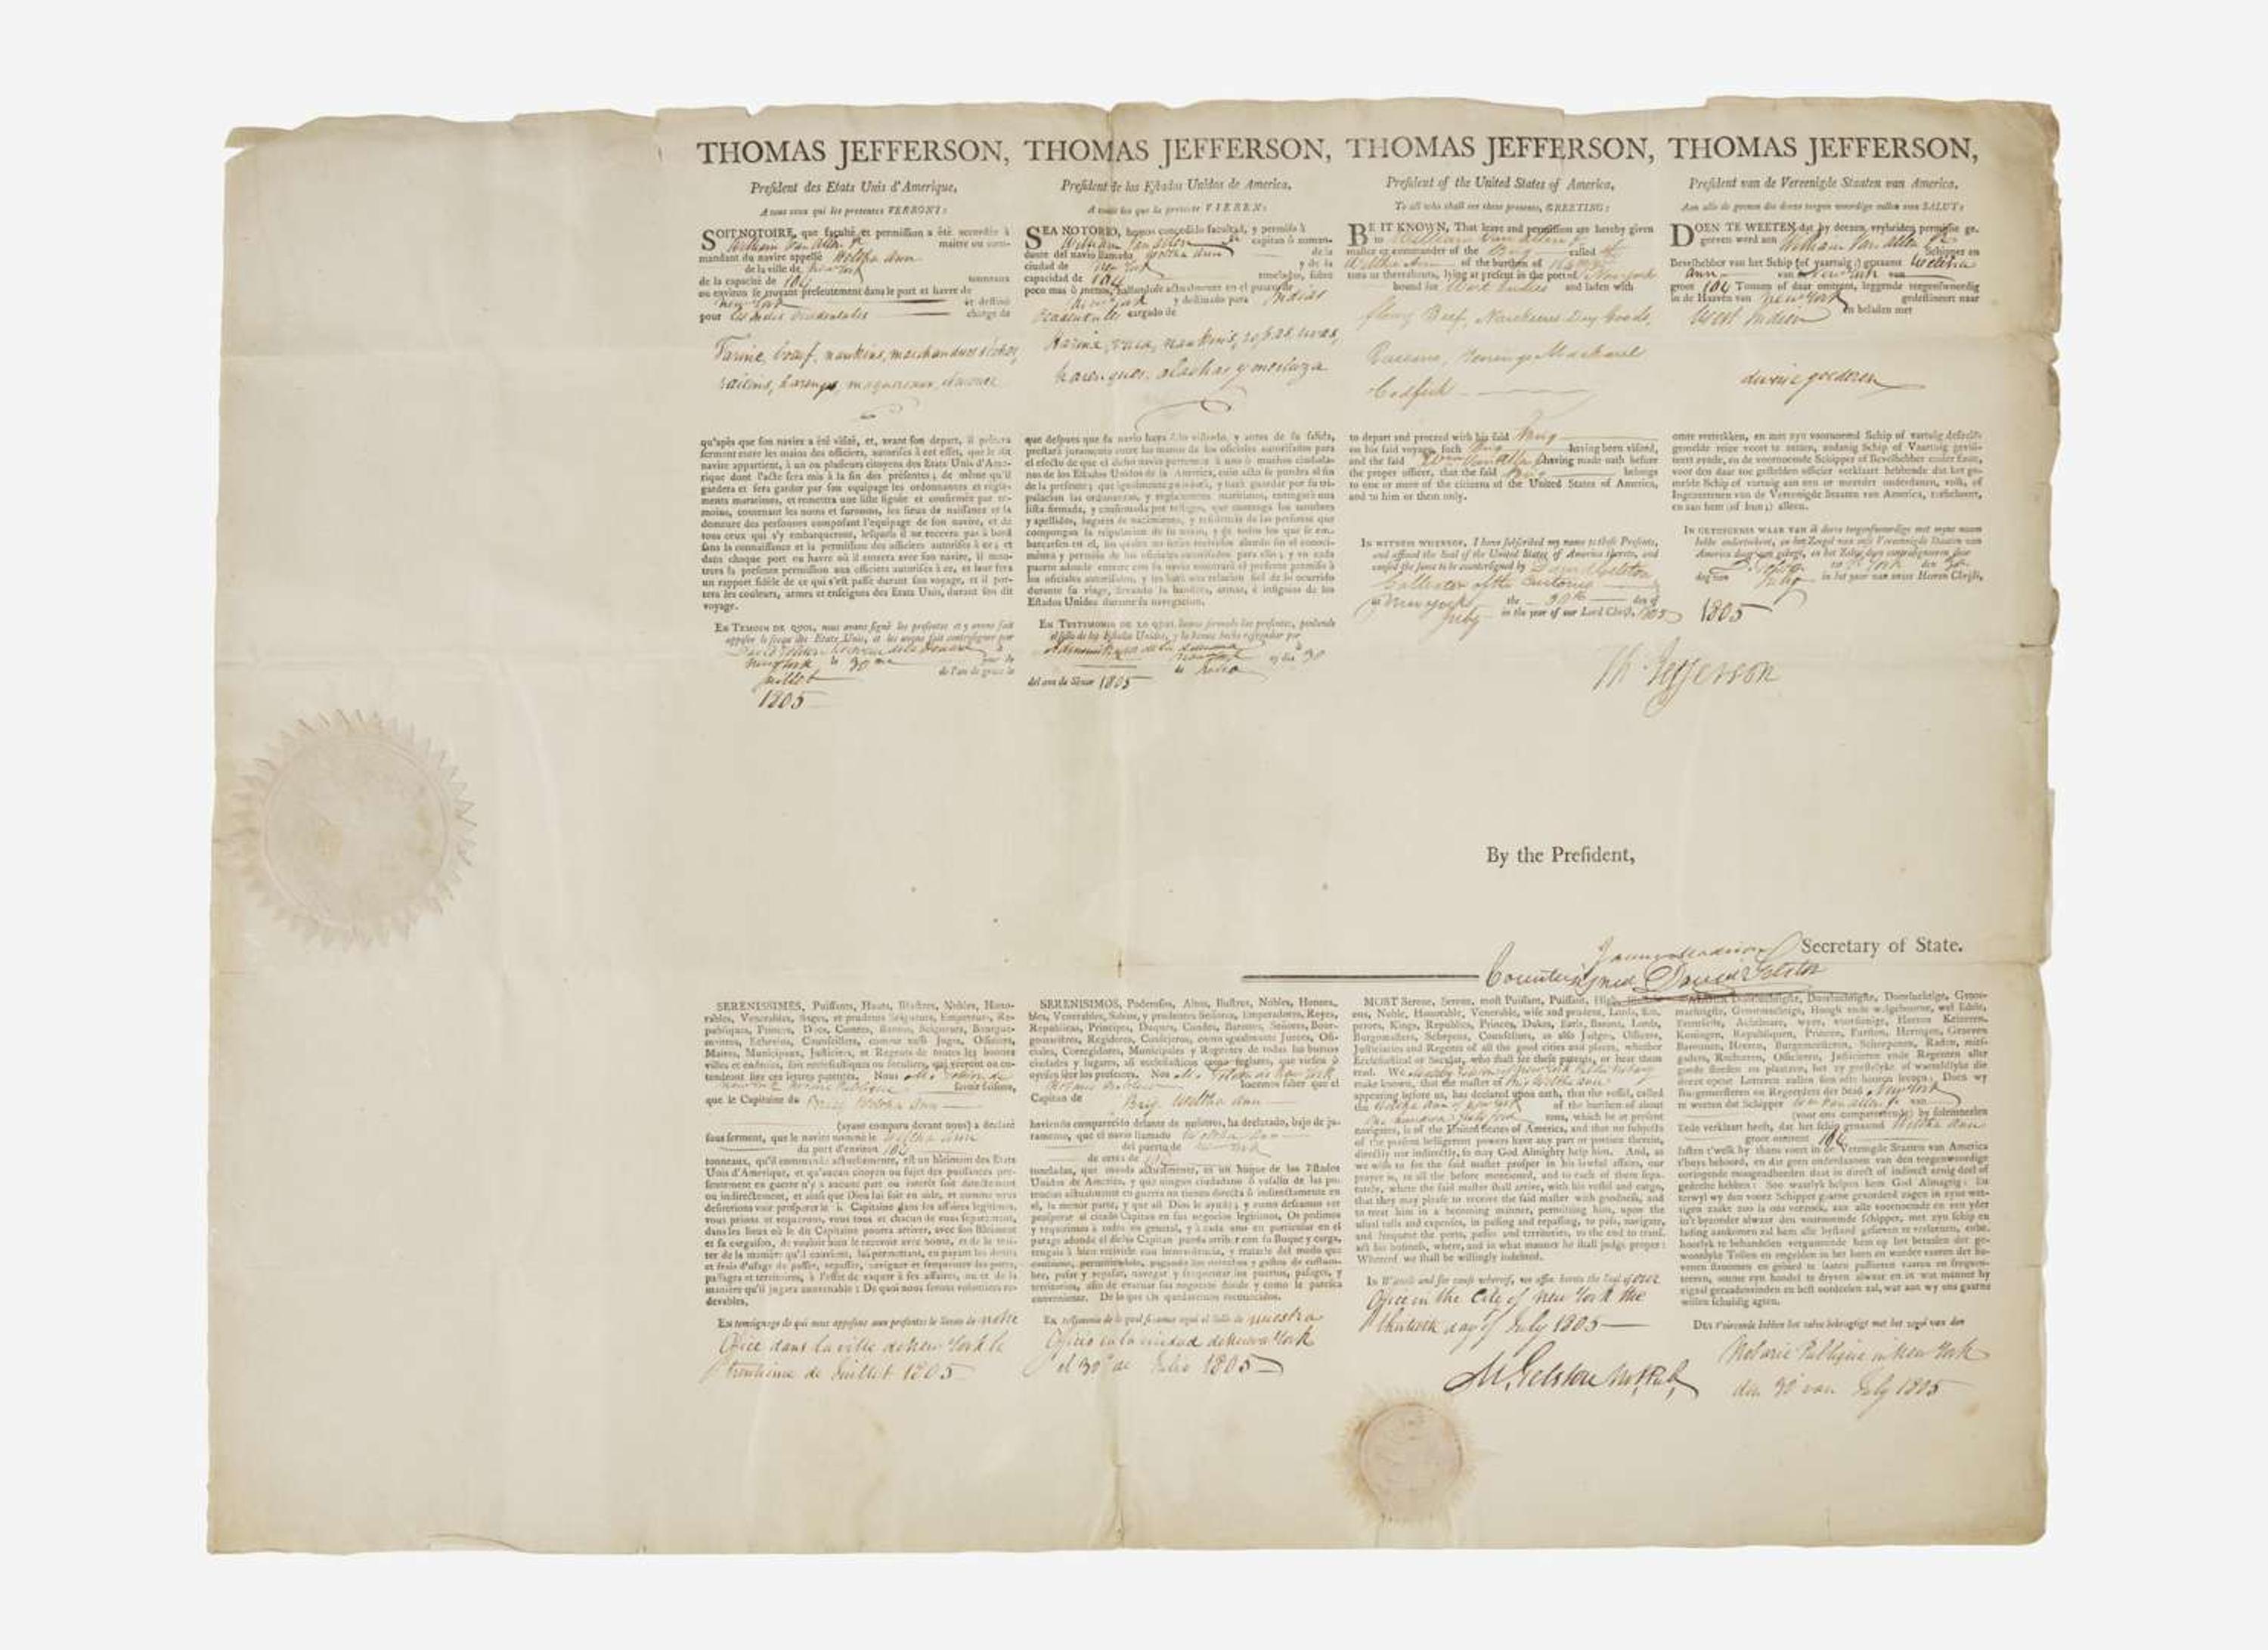 THOMAS JEFFERSON,
President des Etats Unis d'Amerique,
A tous ceux qui les presentes VERRONT:
SOIT NOTOIRE, que faculté et permission a été accordée à
William Van Allen Jr maitre ou com-
mandant du navire appellé Weltha Ann
de la ville de New York
de la capacité de 104 tonneaux
ou environ se trouvant présentement dans le port et havre de
New York et destiné
pour les Indes Occidentales chargé de
Farine, boeuf, nankins, marchandises sèches,
raisins, harengs, maquereaux,
qu'après que son navire a été visité, et, avant son depart, il prêtera
serment entre les mains des officiers, autorisés à cet effet, que le dit
navire appartient, à un ou plusieurs citoyens des Etats Unis d'Amé-
rique dont l'acte sera mis à la fin des présentes; de même qu'il
gardera et fera garder par son equipage les ordonnances et regle-
ments maratimes, et remettra une liste signée et confirmée par te-
moins, contenant les noms et surnoms, les lieux de naissance et la
demeure des personnes composant l'equipage de son navire, et de
tous ceux qui s'y embarqueront, lesquels il ne recevra pas à bord
sans la connaissance et la permission des officiers autorisés à ce; et
dans chaque port ou havre où il entrera avec son navire, il mon-
trera la presente permission aux officiers autorisés à ce, et leur fera
un rapport fidèle de ce qui s'est passé durant son voyage, et il por-
tera les couleurs, armes et enseignes des Etats Unis, durant son dit
voyage.
EN TEMOIN DE QUOI, nous avons signé les presentes et y avons fait
apposer le sceau des Etats Unis, et les avons fait contresigner par
David Gelston de la Douane à
New York le 30me jour de
Juillet de l'an de grace le
1805
THOMAS JEFFERSON,
President de los Estados Unidos de America,
A todos los que la presente VIEREN:
SEA NOTORIO, hemos concedido facultad, y permiso à
William Van Allen Jr capitan ò coman-
dante del navio llamado Weltha Ann de la
ciudad de New York y de la
capacidad de 104 toneladas, sobre
poco mas ò menos, hallandose actualmente en el puerto de
New York y destinado para Indias
Ocadentales cargado de
Harina, vaca, nankins, ropas, uvas,
harenques, alachas y merluza
que despues que su navio haya sido visitado, y antes de su salida,
prestará juramento entre las manos de los oficiales autorizados para
el efecto de que el dicho navio pertenece à uno ò muchos ciudada-
nos de los Estados Unidos de la America, cuio acto se pondra al fin
de la presente; que igualmente guardará, y hará guardar por su tri-
pulacion las ordenanzas, y reglamentos maritimos, entregará una
lista firmada, y confirmada por testigos, que contenga los nombres
y apellidos, lugares de nacimiento, y residencia de las personas que
compongan la tripulacion de su navio, y de todos los que se em-
barcasen en el, los quales no seran recividos abordo sin el conoci-
miento y permiso de los oficiales autorizados para ello; y en cada
puerto adonde entrere con su navio mostrará el presente permiso à
los oficiales autorizados, y les hará una relacion fiel de lo ocurrido
durante su viage, llevando la bandera, armas, è insignias de los
Estados Unidos durante su navegacion.
EN TESTIMONIO DE LO QUAL hemos firmado los presentes, poniendo
el sello de los Estados Unidos, y lo hemos hecho refrendar por
New York el dia 30
de Julio
del ano de Senor 1805
THOMAS JEFFERSON,
President of the United States of America,
To all who shall see these presents, GREETING:
BE IT KNOWN, That leave and permission are hereby given
to William Van Allen Jr
master or commander of the Brig called the
Weltha Ann of the burthen of 104
tons or thereabouts, lying at present in the port of New York
bound for West Indies and laden with
flour, Beef, Nankeens Dry Goods,
Raisins, Herrings Mackarel
Codfish
to depart and proceed with his said Brig
on his said voyage, such Brig having been visited,
and the said William Van Allen Jr having made oath before
the proper officer, that the said Brig belongs
to one or more of the citizens of the United States of America,
and to him or them only.
IN WITNESS WHEREOF, I have subscribed my name to these Presents,
and affixed the Seal of the United States of America thereto, and
caused the same to be countersigned by David Gelston
Collector of the Customs
at New York the 30th day of
July in the year of our Lord Christ, 1805
THOMAS JEFFERSON,
President van de Vereenigde Staaten van America,
Aan alle de geenen die deeze tegen woordige zullen zien SALUT:
DOEN TE WEETEN dat by deezen, vryheiden permissie ge-
geeven werd aan William Van Allen Jr Schipper en
Bevelhebber van het Schip (of vaartuig) genaamt Weltha
Ann van New York van
groot 104 Tonnen of daar omtrent, leggende tegenwoordig
in de Haaven van New York gedestineert naar
West Indien en beladen met
goederen
omte vertrekken, en met zyn voornoemd Schip of vartuig deszelfs
gemelde reize voort te zetten, zodanig Schip of Vaartuig gevisi-
teert zynde, en de voornoemde Schipper of Bevelhebber onder Eede,
voor den daar toe gestelden officier verklaart hebbende dat het ge-
melde Schip of vartuig aan een or meerder onderdanen, volk, of
Ingezeetenen van de Vereenigde Staaten van America, toebehoort,
en aan hem (of hun;) alleen.
IN GETUIGENIS WAAR VAN ik deeze tegenswoordige met myne naam
hebbe ondertekent, en het Zegel van onse Vereenigde Staaten van
America daar aan gehegt, en het Zelve doen contrasigneeren door
D. Gelston to N. York den 30
dag van July in het jaar van onzen Heeren Christi,
1805
Th: Jefferson
By the President,
James Madison Secretary of State.
Countersigned David Gelston
SERENISSIMES, Puissans, Hauts, Illustres, Nobles, Hono-
rables, Venerables, Sages, et prudens Seigneurs, Empereurs, Re-
publiques, Princes, Ducs, Comtes, Barons, Seigneurs, Bourgue-
mestres, Echevins, Conseillers, comme aussi Juges, Officiers,
Maires, Municipaux, Justiciers, et Regents de toutes les bonnes
villes et endroits, soit ecclésiastiques ou seculiers, qui verront ou en-
tendront lire ces lettres patentes. Nous M. Gelston de
New York Notaire Publique savoir faisons,
que le Capitaine du Brig Weltha Ann
(ayant comparu devant nous) a declaré
sous serment, que le navire nommé le Weltha Ann
du port d'environ 104
tonneaux, qu'il commande actuellement, est un bâtiment des Etats
Unis d'Amerique, et qu'aucun citoyen ou sujet des puissances pre-
sentement en guerre n'y a aucune part ou interêt soit directement
ou indirectement, et ainsi que Dieu lui soit en aide, et comme nous
desirerions voir prospérer le dit Capitaine dans ses affaires legitimes,
vous prions et requerons, vous tous et chacun de vous separement,
dans les lieux où le dit Capitaine pourra arriver, avec son Bâtiment
et sa cargaison, de vouloir bien le recevoir avec bonté, et de le trai-
ter de la manière qu'il convient, lui permettant, en payant les droits
et frais d'usage de passer, repasser, naviguer et frequenter les ports,
passages et territoires, à l'effet de vaquer à ses affaires, ou et de la
manière qu'il jugera convenable: De quoi nous serons volontiers re-
devables.
En temoignage de quoi nous apposons aux présentes le Sceau de notre
Office dans la ville de New York le
trentieme de Juillet 1805
SERENISIMOS, Poderosos, Altos, Ilustres, Nobles, Honora-
bles, Venerables, Sabios, y prudentes Señores, Emperadores, Reyes,
Republicas, Principes, Duques, Condes, Barones, Señores, Bour-
gomestres, Regidores, Consejeros, como igualmente Jueces, Ofi-
ciales, Corregidores, Municipales y Regentes de todas las buenas
ciudades y lugares, asi ecclesiasticos como seglares, que viesen ò
oyesen leer los presentes. Nos M. Gelston de New York
Notario Publico hacemos saber que el
Capitan de Brig Weltha Ann
haviendo comparecido delante de nosotros, ha declarado, bajo de ju-
ramento, que el navio llamado Weltha Ann
del puerto de New York
de cerca de 104
toneladas, que manda actualmente, es un buque de los Estados
Unidos de America, y que ningun ciudadano ò vasallo de las po-
tencias actualmente en guerra no tienen directa ò indirectamente en
el, la menor parte, y que asi Dios le ayude; y como deseamos ver
prosperar al citado Capitan en sus negocios legitimos, Os pedimos
y requerimos à todos en general, y à cada uno en particular en el
parage adonde el dicho Capitan pueda arribar con su Buque y carga,
tengais à bien recivirle con benevolencia, y tratarle del modo que
conviene, permitiendole, pagando los derechos y gastos de costum-
bre, pasar y repasar, navegar y frequentar los puertos, pasages, y
territorios, afin de evacuar sus negocios donde y como le parezca
conveniente. De lo que Os quedaremos reconocidos.
En testimonio de lo qual fixamos aqui el Sello de nuestra
Oficio en la ciudad de Nueva York
el 30o de Julio 1805
MOST Serene, Serene, most Puissant, Puissant, High,
ous, Noble, Honorable, Venerable, wise and prudent, Lords, Em-
perors, Kings, Republics, Princes, Dukes, Earls, Barons, Lords,
Burgomasters, Schepens, Counsellors, as also Judges, Officers,
Justiciaries and Regents of all the good cities and places, whether
Ecclesiastical or Secular, who shall see these patents, or hear them
read. We Maltby Gelston of New York Public Notary
make known, that the master of Brig Weltha Ann
appearing before us, has declared upon oath, that the vessel, called
the Weltha Ann of New York of the burthen of about
One hundred & four tons, which he at present
navigates, is of the United States of America, and that no subjects
of the present belligerent powers have any part or portion therein,
directly nor indirectly, so may God Almighty help him. And, as
we wish to see the said master prosper in his lawful affairs, our
prayer is, to all the before mentioned, and to each of them sepa-
rately, where the said master shall arrive, with his vessel and cargo,
that they may please to receive the said master with goodness, and
to treat him in a becoming manner, permitting him, upon the
usual tolls and expenses, in passing and repassing, to pass, navigate,
and frequent the ports, passes and territories, to the end to trans-
act his business, where, and in what manner he shall judge proper:
Whereof we shall be willingly indebted.
In Witness and for cause whereof, we affix hereto the Seal of our
Office in the City of New York the
thirtieth day of July 1805
M. Gelston Not. Pub.
Doorluchtigste, Doorluchtige, Groot-
machtigste, Grootmachtige, Hoogh ende welgeboorne, wel Edele,
Erentfeste, Achtbaare, wyze, voorsienige, Heeren Keizeren,
Koningen, Republicquen, Princen, Fursten, Hertogen, Graeven
Baronnen, Heeren, Burgermeesteren, Schepenen, Raden, mits-
gaders, Rechteren, Officieren, Justicieren ende Regenten aller
goede steeden en plaatzen, het zy geestelyke of waereldlyke die
deeze opene Letteren zullen sien ofte hooren leezen: Doen wy
Burgermeesteren en Regeerders der Stad New York
te weeten dat Schipper Wm Van Allen Jr van
(voor ons compareerende) by solemneelen
Eede verklaart heeft, dat het schip genaamd Weltha Ann
groot omtrent 104
lasten t'welk hy thans voert in de Vereenigde Staaten van America
t'huys behoord, en dat geen onderdaanen van den tegenwoordige
oorlogende moogendheeden daar in direct of indirect eenig deel of
gedeelte hebben: Soo waarlyk helpen hem God Almagtig: En
terwyl wy den voorz Schipper gaarne gevorderd zagen in zyne wet-
tigen zaake zoo is ons verzoek, aan alle voornoemde en een yder
in't byzonder alwaer den voornoemde schipper, met zyn schip en
lading aankomen zal hem alle bystand gelieven te verleenen, ende
hoorlyk te behandelen vergunnende hem op het betalen der ge-
woonlyke Tollen en ongelden in het heen en weeder vaaren der ha-
venen stroomen en gebied te laaten passeeren vaaren en frequen-
teeren, omme zyn handel te dryven alwaar en in wat manier hy
zigzal geraadevinden en best oordeelen zal, war aan wy ons gaarne
willen schuldig agten.
Des t'oirconde hebben het zelve bekragtigt met het zegel van den
Notarie Publique in New York
den 30 van July 1805